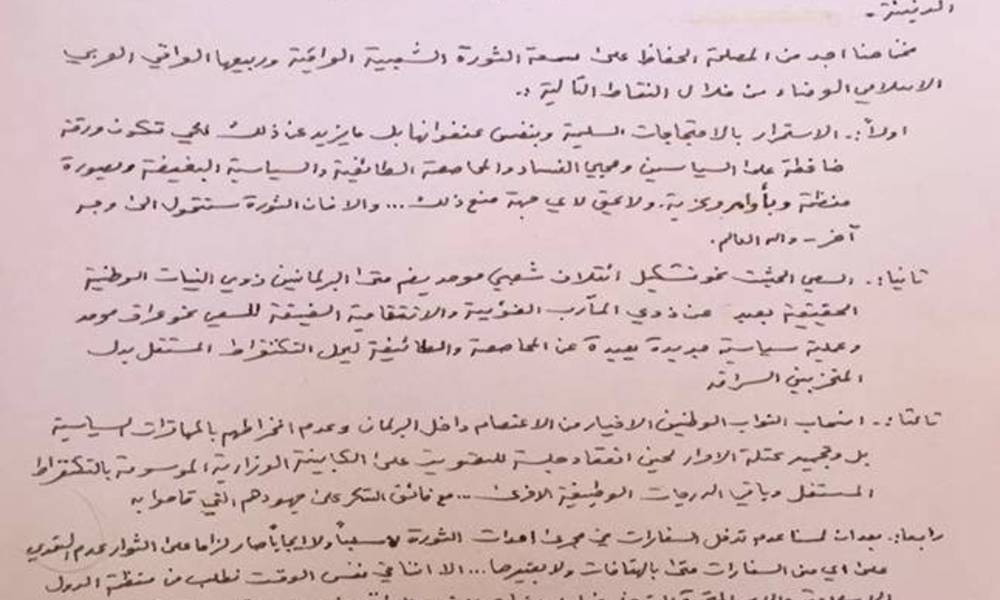 الدفينة -
فمن هنا اجد من المصلحة الحفاظ على سمعة الثورة الشعبية العراقية وربيعها العراقي العربي
الاسلامي الوضاء من خلال النقاط التالية :-
اولاً:- الاستمرار بالاحتجاجات السلمية وبنفس عنفوانها بل ما يزيد عن ذلك لكي تكون ورقة
ضاغطة على السياسيين ومحبي الفساد والمحاصصة الطائفية والسياسية البغيضة وبصورة
منظمة وبأوامر مركزية. ولا يحق لاي جهة منع ذلك ... والا فان الثورة ستتحول الى وجه
آخر - والله العالم.
ثانيا:- السعي الحثيث نحو تشكيل ائتلاف شعبي موحد يضم حتى البرلمانيين ذوي النيات الوطنية
الحقيقية بعيد عن ذوي المآرب الفئوية والانتقامية الضيقة للسعي نحو عراق موحد
وعملية سياسية جديدة بعيدة عن المحاصصة والطائفية ليحل التكنقراط المستقل بدل
المتحزبين السراق
ثالثا:- انسحاب النواب الوطنيين الاخيار من الاعتصام داخل البرلمان وعدم انخراطهم بالمهاترات السياسية
بل وتجميد كتلة الاحرار لحين انعقاد جلسة للتصويت على الكابينة الوزارية الموسومة بالتكنقراط
المستقل وباقي الدرجات الوظيفية الاخرى ... مع فائق الشكر على جهودهم التي قاموا به
رابعا:- بعد ان لمسنا عدم تدخل السفارات في مجرى احداث الثورة لا سلباً ولا ايجاباً صار لزاما على الثوار عدم التعدي
على اي من السفارات حتى بالهتافات ولا بغيرها ... الا اننا في نفس الوقت نطلب من منظمة الدول